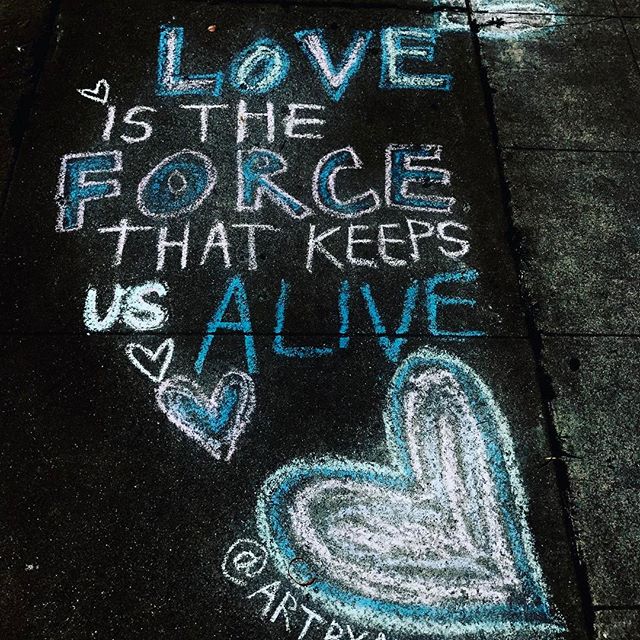 LOVE
IS THE
FORCE
THAT KEEPS
US ALIVE